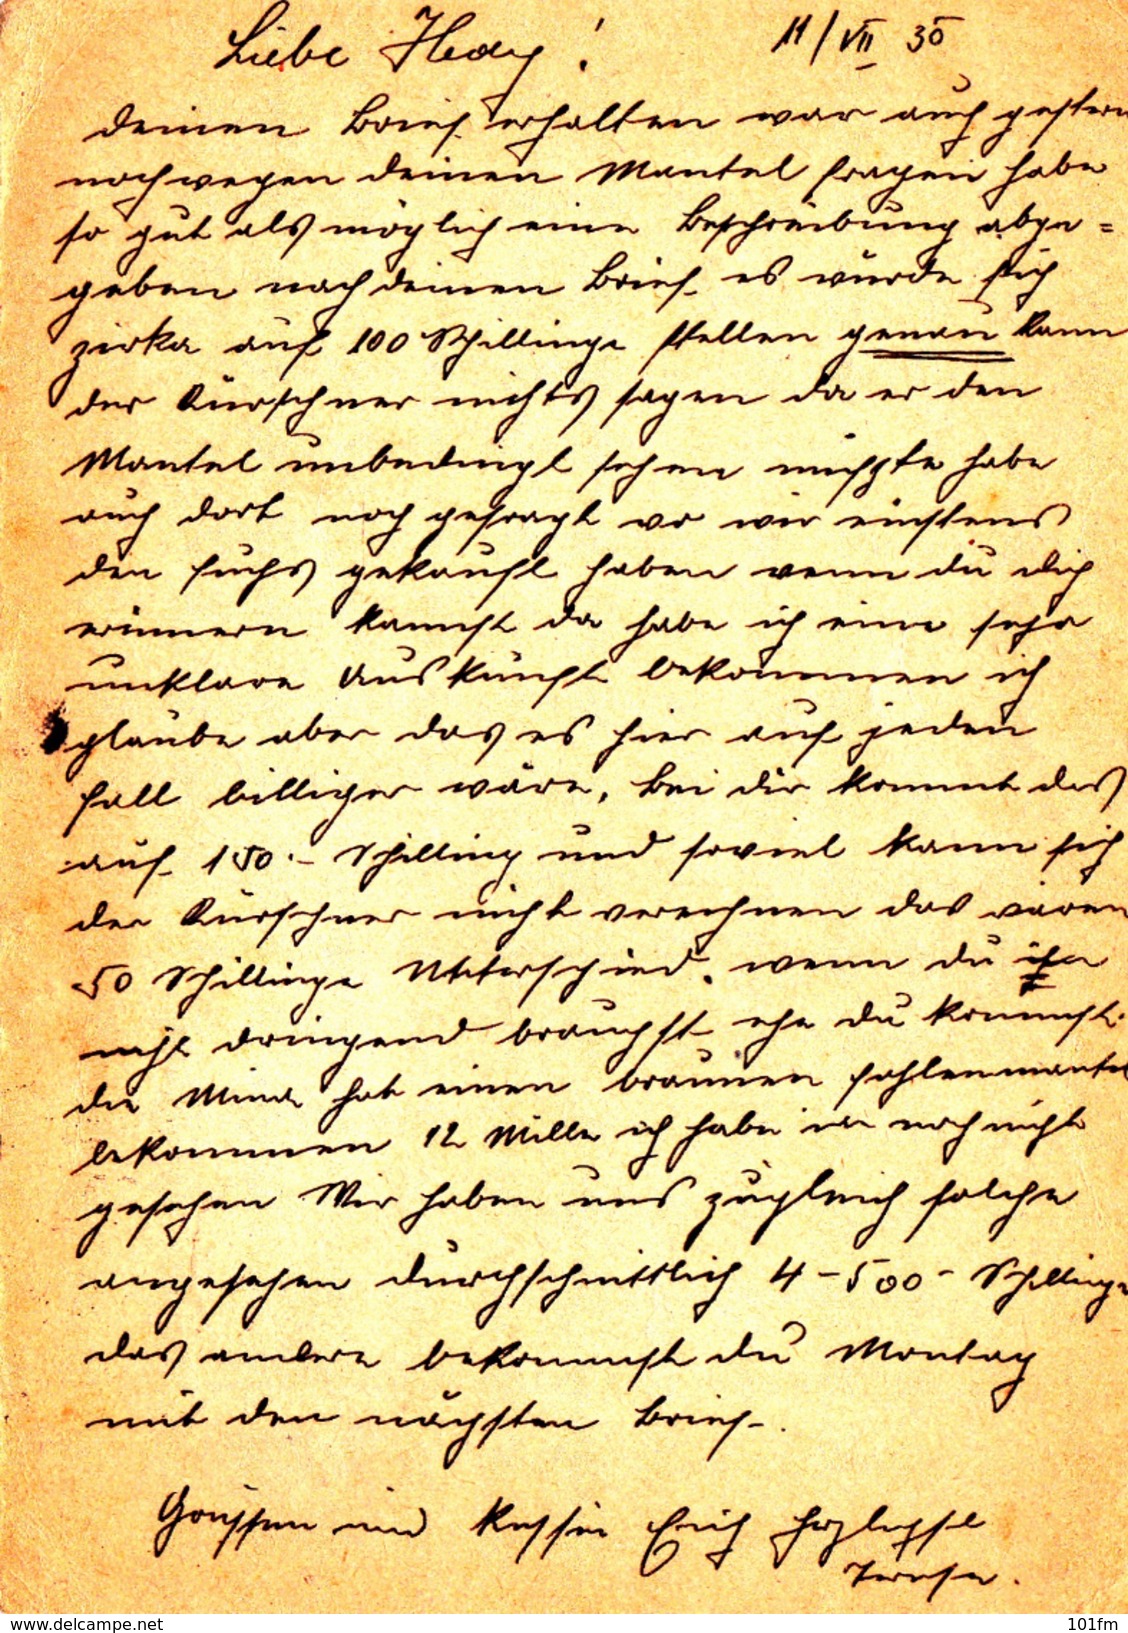 Liebe Hedy! 11/VII 35
deinen Brief erhalten war auch gestern
noch wegen deinen Mantel fragen habe
so gut als möglich eine Beschreibung abge=
geben nach deinen Brief es würde sich
zirka auf 100 Schillinge stellen genau kann
der Kürschner nichts sagen da er den
Mantel unbedingt sehen müsste habe
auch dort noch gefragt wo wir einstens
den Fuchs gekauft haben wenn du dich
erinnern kannst da habe ich eine sehr
unklare Auskunft bekommen ich
glaube aber das es hier auf jeden
Fall billiger wäre, bei dir kommt das
auf 150.- Schilling und soviel kann sich
der Kürschner nicht verechnen das wären
50 Schillinge Unterschied. wenn du ihn
nicht dringend brauchst ehe du kommst.
die Minna hat einen braunen Fohlenmantel
bekommen 12 Mille ich habe in noch nicht
gesehen Wir haben uns zugleich solche
angesehen durchschnittlich 4-500- Schillinge
das andere bekommst du Montag
mit den nächsten Brief.
Grüssen und Küssen Erich herzlichst
Terese.
delcampe.net
101fm